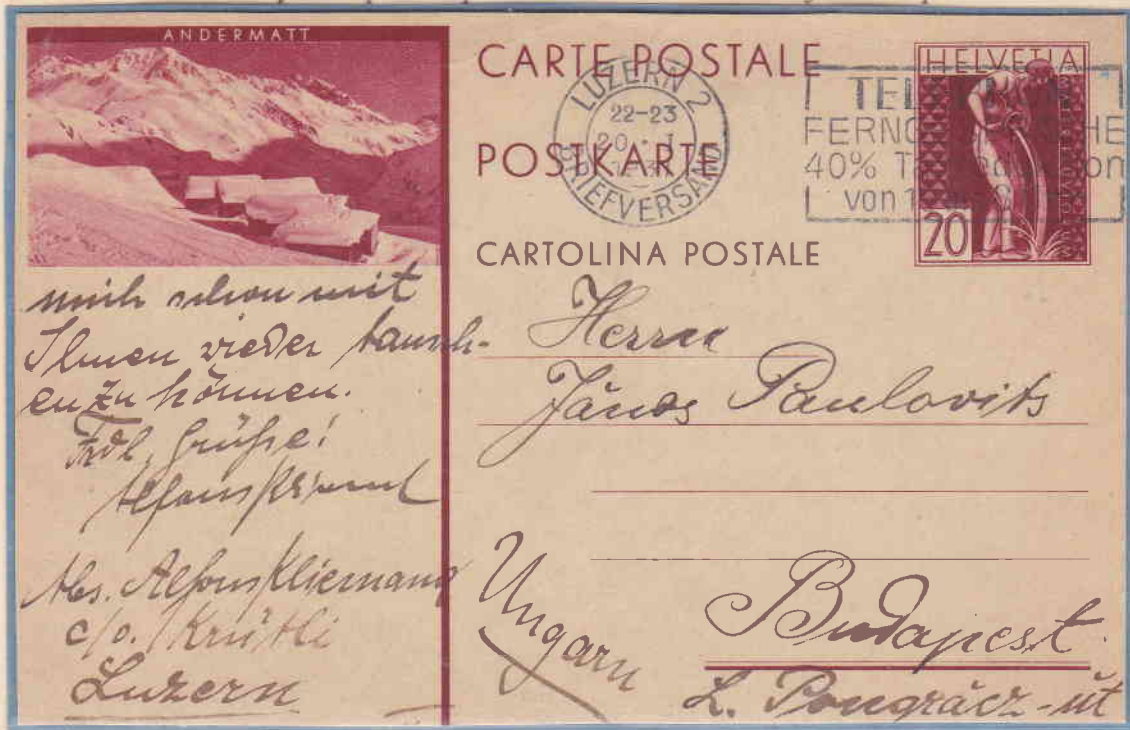 ANDERMATT
CARTE POSTALE
POSTKARTE
CARTOLINA POSTALE
LUZERN 2
22-23
20. I
BRIEFVERSAND
HELVETIA
20
40%
von
mich schon mit
Ihnen wieder tausch-
en zu können.
Frdl. Grüße!
Alfons
Abs. Alfons Kliemand
c/o. Krütli
Luzern
Herrn
János Paulovits
Ungarn
Budapest
L. Pongrácz-út